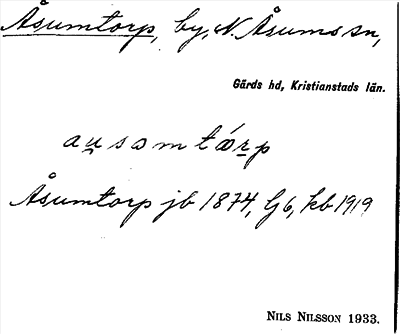 Åsumtorp, by, N. Åsums sn,
Gärds hd, Kristianstads län.
au̯səmtǿr̠p
Åsumtorp jb 1874, Lj 6, kb 1919
NILS NILSSON 1933.